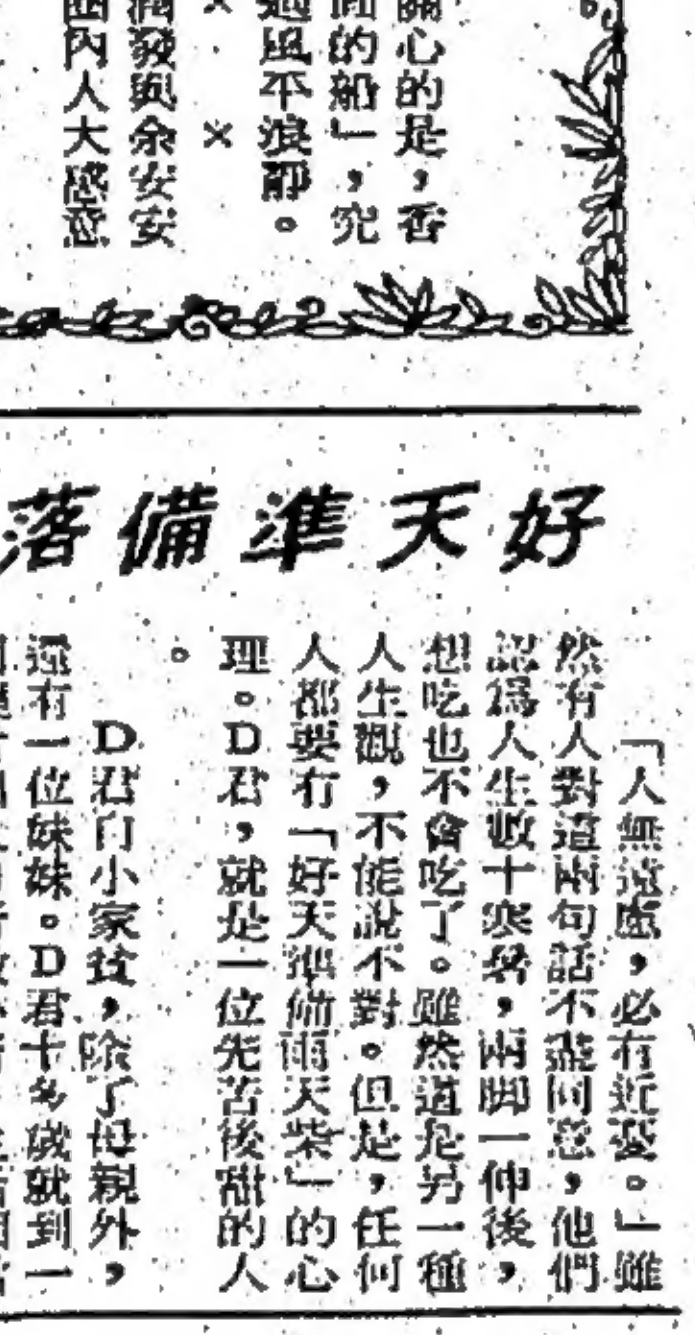 關心的是,香
面的船」,究
過風平浪靜。
× ×
潤發與余安安
圈內人大感意
好天準備落
「人無遠慮,必有近憂。」雖
然有人對這兩句話不盡同意,他們
認爲人生數十寒暑,兩脚一伸後,
想吃也不會吃了。雖然這是另一種
人生觀,不能說不對。但是,任何
人都要有「好天準備雨天柴」的心
理。D君,就是一位先苦後甜的人
。
D君自小家貧,除了母親外,
還有一位妹妹。D君十多歲就到一